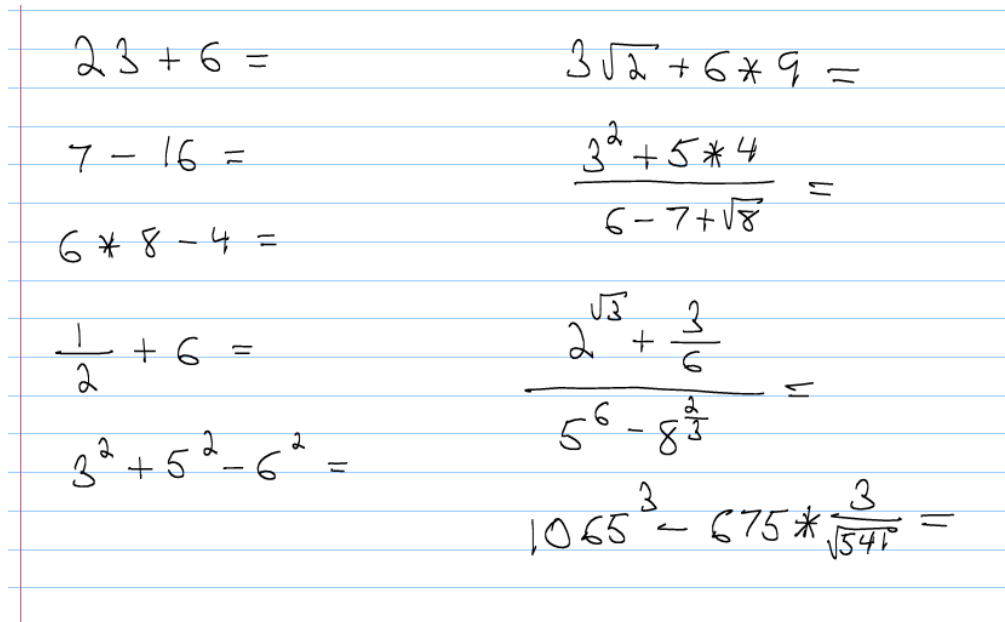 23 + 6 =
7 - 16 =
6 * 8 - 4 =
1/2 + 6 =
3² + 5² - 6² =
3√2 + 6 * 9 =
(3² + 5 * 4)/(6 - 7 + √8) =
(2^(√3) + 3/6)/(5⁶ - 8^(2/3)) =
1065³ - 675 * 3/√541 =